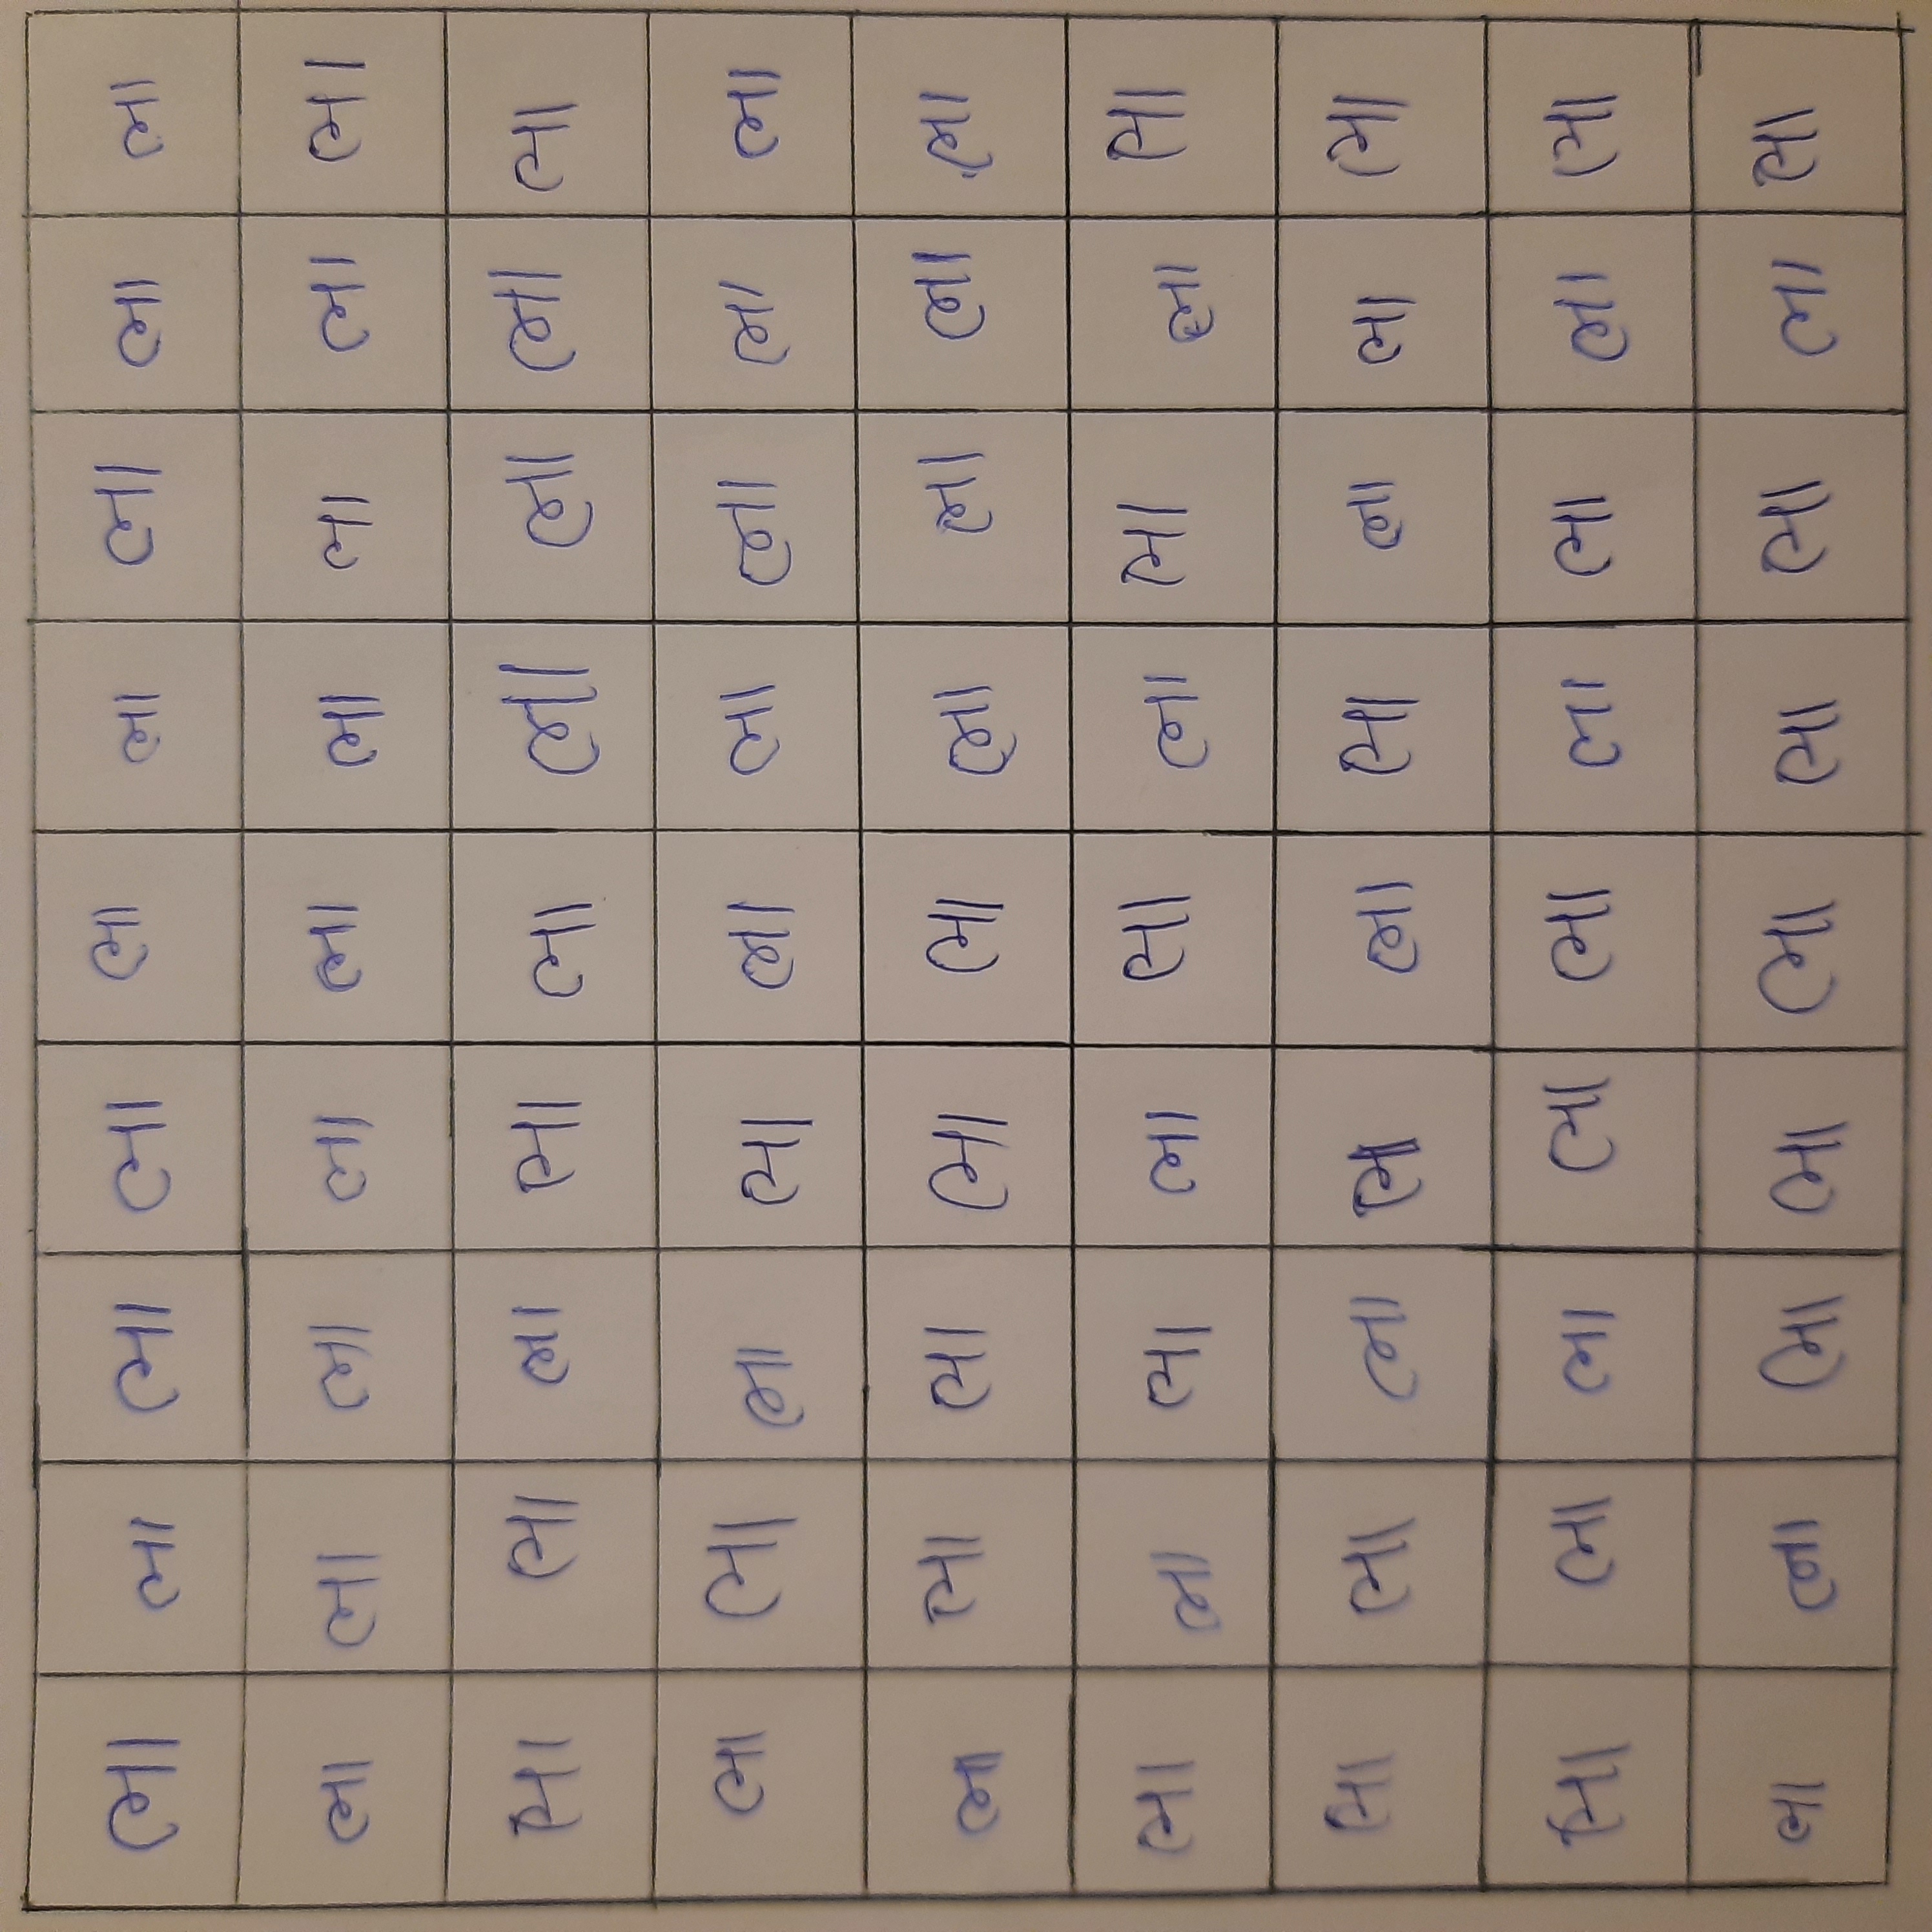 ભા ભા ભા ભા ભા ભા ભા ભા ભા
ભા ભા ભા ભા ભા ભા ભા ભા ભા
ભા ભા ભા ભા ભા ભા ભા ભા ભા
ભા ભા ભા ભા ભા ભા ભા ભા ભા
ભા ભા ભા ભા ભા ભા ભા ભા ભા
ભા ભા ભા ભા ભા ભા ભા ભા ભા
ભા ભા ભા ભા ભા ભા ભા ભા ભા
ભા ભા ભા ભા ભા ભા ભા ભા ભા
ભા ભા ભા ભા ભા ભા ભા ભા ભા